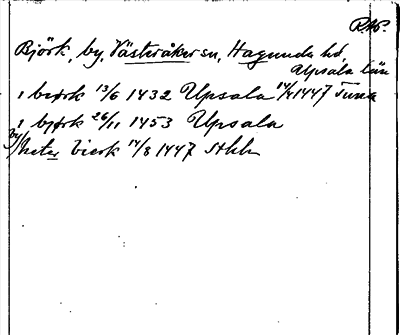 RAP.
Björk, by, Västeråker sn, Hagunda hd,
Upsala län
i biørk 13/6 1432 Upsala 14/4 1447 Tuna
i bjørk 26/11 1453 Upsala
by heter Bierk 14/8 1447 Sthlm